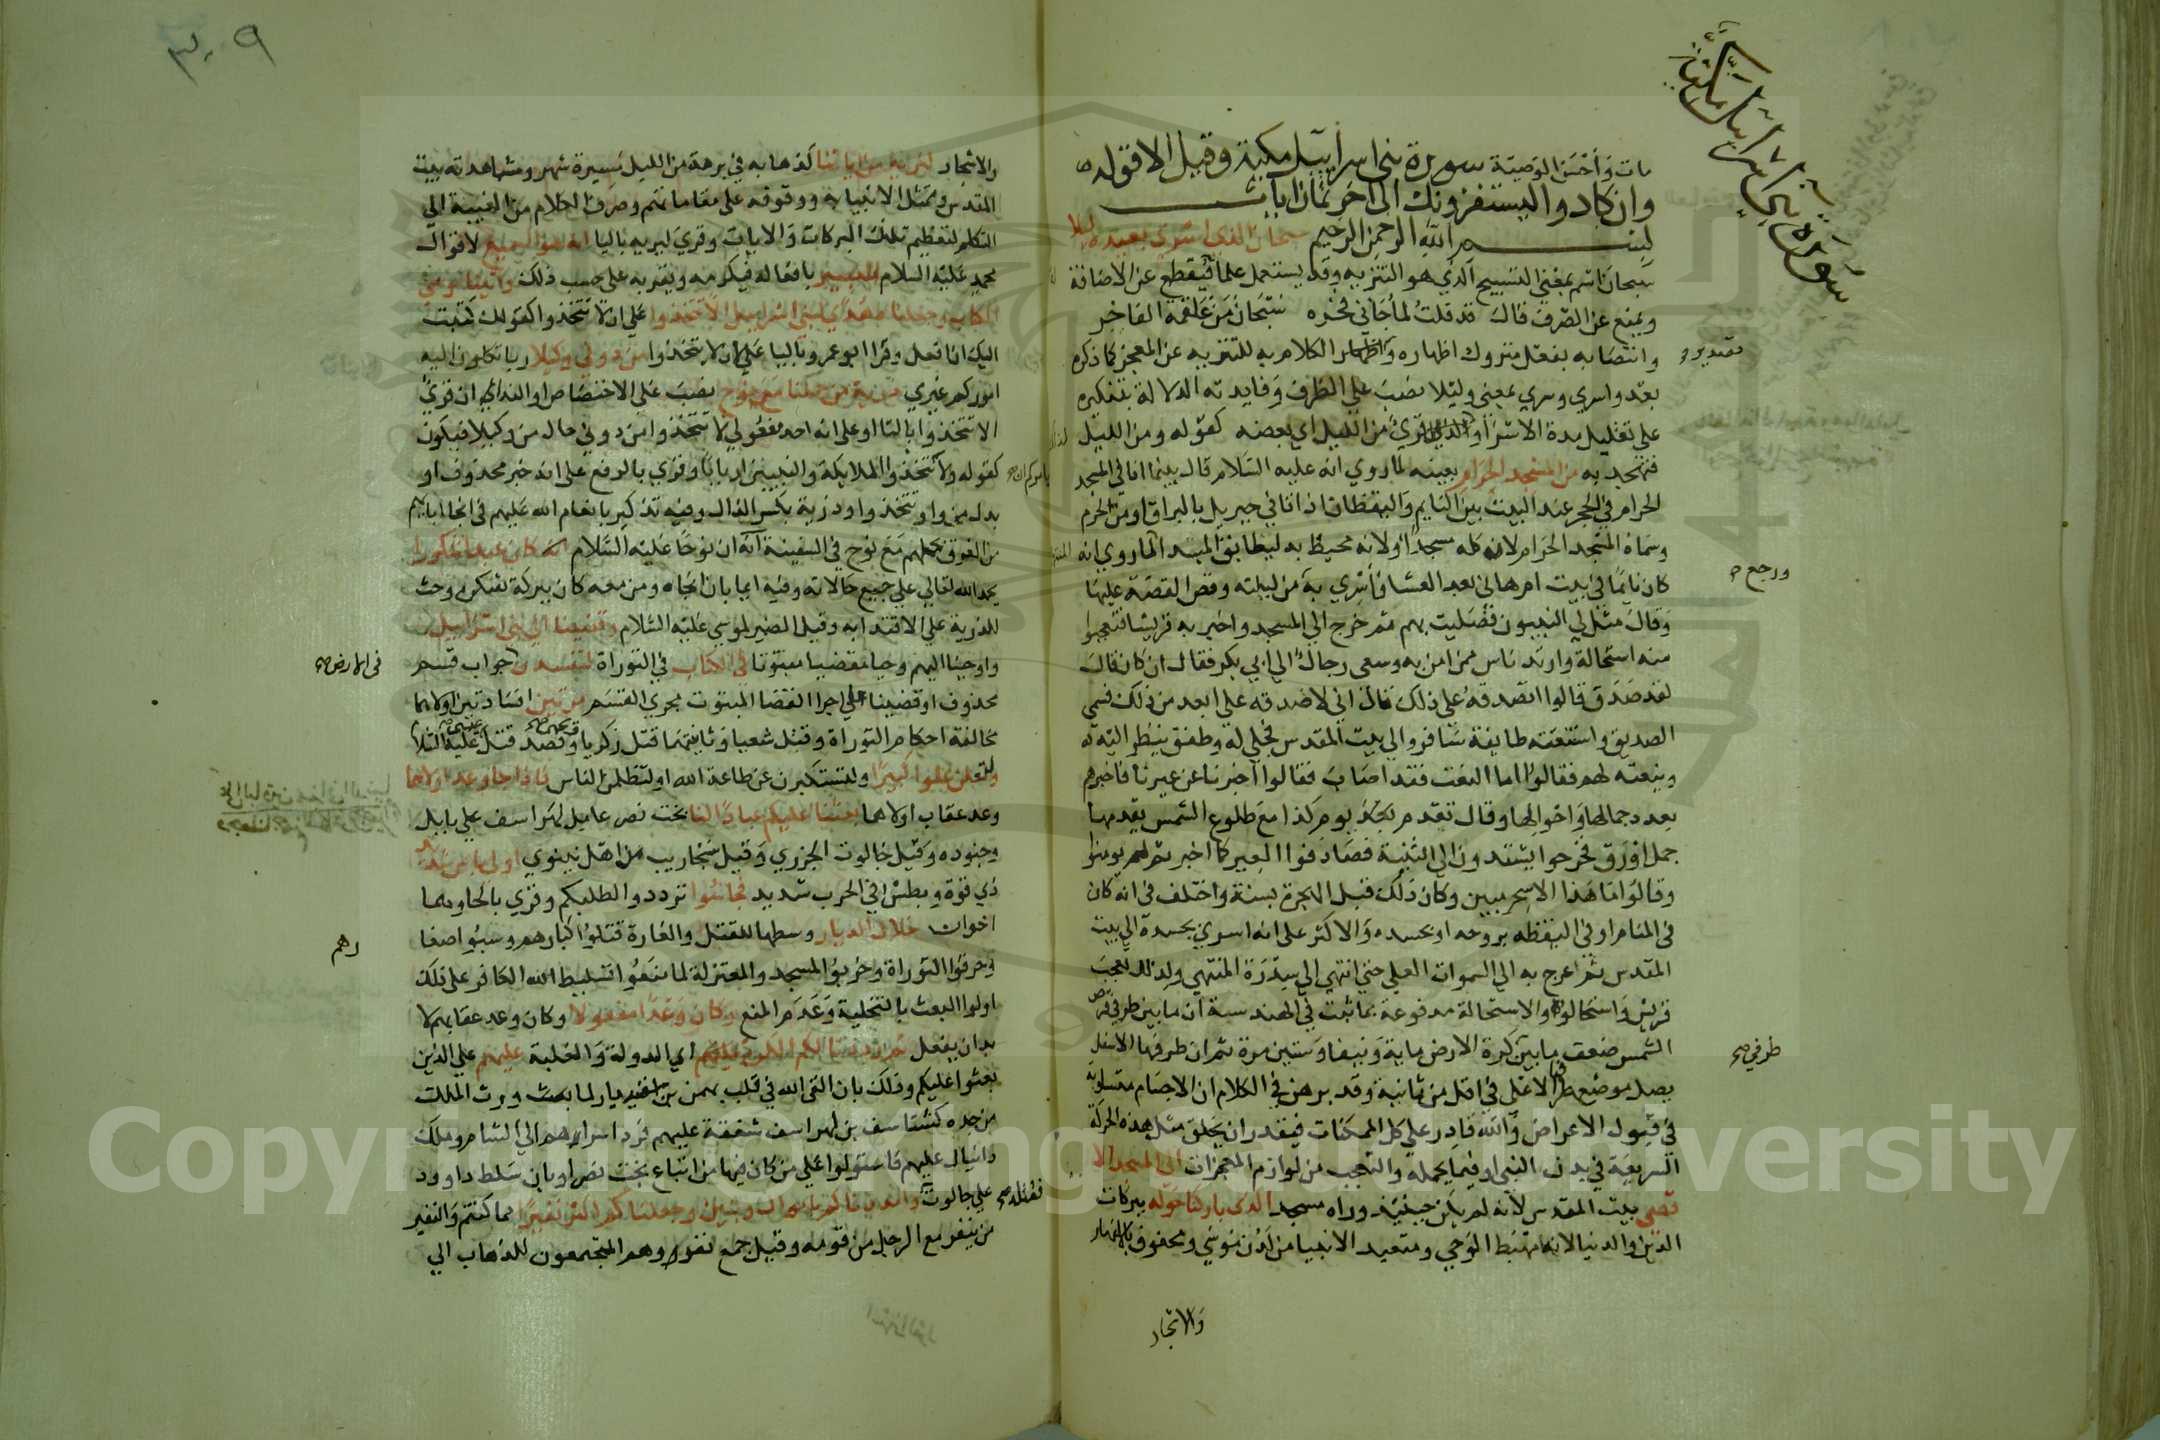 سورة بني اسرائيل مكية
مات وأحسن الوصية سورة بني اسرائيل مكية وقيل الا قوله
وان كادوا ليستفزونك الى آخر ثمان آيات
بسم الله الرحمن الرحيم سبحان الذي اسري بعبده ليلا
سبحان اسم بمعني التسبيح الذي هو التنزيه وقد يستعمل علما فيقطع عن الاضافة
ويمنع عن الصرف قال قد قلت لما جاني فخره سبحان من علقمة الفاخر
وانتصابه بفعل متروك اظهاره وتصدير الكلام به للتنزيه عن العجز كما ذكره
بعد واسري وسري بمعنى وليلا نصب علي الظرف وفايدته الدلالة بتنكيره
على تقليل مدة الاسرا ولذلك قري من الليل اي بعضه كقوله ومن الليل
فتهجد به من المسجد الحرام بعينه لما روي انه عليه السلام قال بينما انا في المسجد
الحرام في الحجر عند البيت بين النايم واليقظان اذ اتاني جبريل بالبراق او من الحرم
وسماه المسجد الحرام لانه كله مسجد او لانه محيط به ليطابق المبدا لما روي انه
كان نايما في بيت ام هاني بعد العشا فأسري به من ليلته وقص القصة عليها
وقال مثل لي النبيون فصليت بهم ثم خرج الي المسجد واخبر به قريشا فتعجبوا
منه استحالة وارتد ناس ممن امن به وسعى رجال الي ابي بكر فقال ان كان قال
لقد صدق قالوا اتصدقه على ذلك قال اني لاصدقه علي ابعد من ذلك فسمى
الصديق واستنعته طايفة سافروا الي بيت المقدس فجلي له وطفق ينظر اليه
وينعته لهم فقالوا اما النعت فقد اصاب فقالوا اخبرنا عن عيرنا فاخبرهم
بعدد جمالها واحوالها وقال تقدم يوم كذا مع طلوع الشمس يقدمها
جمل اورق فخرجوا يشتدون الي الثنية فصادفوا العير كما اخبر ثم لم يومنوا
وقالوا ما هذا الا سحر مبين وكان ذلك قبل الهجرة بسنة واختلف في انه كان
في المنام او في اليقظه بروحه او بجسده والاكثر على انه اسري بجسده الي بيت
المقدس ثم اعرج به الي السموات العلي حتي انتهي الي سدرة المنتهي ولذلك تعجب
قريش واستحالوه والاستحالة مدفوعة بما ثبت في الهندسة ان ما بين طرفي قرص
الشمس ضعف ما بين كرة الارض ماية ونيفا وستين مرة ثم ان طرفها الاسفل
يصل موضع طرفها الاعلي في اقل من ثانية وقد برهن في الكلام ان الاجسام متساوية
في قبول الاعراض والله قادر علي كل الممكنات فيقدر ان يخلق مثل هذه الحركة
السريعة في بدن النبي او فيما يحمله والتعجب من لوازم المعجزات الي المسجد الا
قصي بيت المقدس لانه لم يكن حينئذ وراه مسجد الذي باركنا حوله ببركات
الدين والدنيا لانه مهبط الوحي ومتعبد الانبيا من لدن موسي ومحفوف بالانهار
والاشجار
طرفي صح
ورجع
٣٠٩
والاشجار لنريه من اياتنا كذهابه في برهة من الليل مسيرة شهر ومشاهدته بيت
المقدس وتمثل الانبيا له ووقوفه علي مقاماتهم وصرف الكلام من الغيبة الي
التكلم لتعظيم تلك البركات والايات وقري ليريه باليا انه هو السميع لاقوال
محمد عليه السلام البصير بافعاله فيكرمه ويقربه على حسب ذلك واتينا موسى
الكتاب وجعلناه هدي لبني اسرائيل الا تتخذوا علي ان لا تتخذوا كقولك كتبت
اليك ان افعل وقرا ابو عمرو باليا علي ان لا يتخذوا من دوني وكيلا ربا تكلون اليه
اموركم غيري ذرية من حملنا مع نوح نصب علي الاختصاص او الندا ان قري
الا تتخذوا بالتا او علي انه احد مفعولي لا تتخذوا ومن دوني حال من وكيلا فيكون
كقوله ولا يامركم ان تتخذوا الملايكة والنبيين اربابا وقري بالرفع على انه خبر محذوف او
بدل من واو تتخذوا وذرية بكسر الذال وفيه تذكير بانعام الله عليهم في انجا ابايهم
من الغرق بحملهم مع نوح في السفينة انه ان نوحا عليه السلام كان عبدا شكورا
يحمد الله تعالي علي جميع حالاته وفيه ايما بان انجاه ومن معه كان ببركة شكره وحث
للذرية علي الاقتدا به وقيل الضمير لموسي عليه السلام وقضينا الي بني اسرائيل
واوحينا اليهم وحيا مقضيا مبتوتا في الكتاب في التوراة لتفسدن جواب قسم
في الارض صح
محذوف او قضينا علي اجرا القضا المبتوت مجري القسم مرتين افسادتين اولاهما
مخالفة احكام التوراة وقتل شعيا وثانيتهما قتل زكريا ويحيى وقصد قتل عيسى عليه السلام
ولتعلن علوا كبيرا ولتستكبرن عن طاعة الله او لتظلمن الناس فاذا جا وعد اولاهما
وعد عقاب اولاهما بعثنا عليكم عبادا لنا بخت نصر عامل لهراسف علي بابل
وجنوده وقيل جالوت الجزري وقيل سنحاريب من اهل نينوي اولي باس شديد
ذي قوة وبطش في الحرب شديد فجاسوا ترددوا لطلبكم وقري بالحا وهما
اخوان خلال الديار وسطها للقتل والغارة قتلوا كبارهم وسبوا صغا
رهم
وحرقوا التوراة وخربوا المسجد والمعتزلة لما منعوا تسليط الله الكافر على ذلك
اولوا البعث بالتخلية وعدم المنع وكان وعدا مفعولا وكان وعد عقابهم لا
بد ان يفعل ثم رددنا لكم الكرة عليهم اي الدولة والغلبة عليهم علي الذين
بعثوا عليكم وذلك بان القى الله في قلب بهمن بن اسفنديار لما ورث الملك
من جده كشتاسف بن لهراسف شفقة عليهم فرد اسراهم الي الشام وملك
دانيال عليهم فاستولوا علي من كان فيها من اتباع بخت نصر او بان سلط داوود
علي جالوت فقتله صح وامددناكم باموال وبنين وجعلناكم اكثر نفيرا مما كنتم والنفير
من ينفر مع الرجل من قومه وقيل جمع نفر وهم المجتمعون للذهاب الي
Copyright © King Saud University